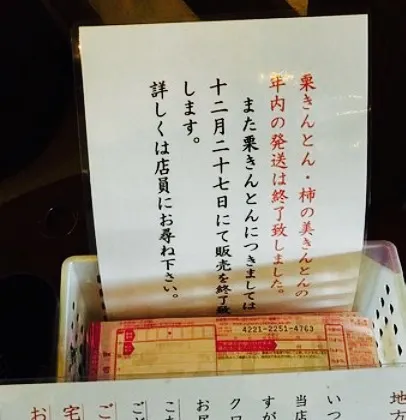 栗きんとん・柿の美きんとんの
年内の発送は終了致しました。
また栗きんとんにつきましては
十二月二十七日にて販売を終了致
します。
詳しくは店員にお尋ね下さい。
4221-2251-4763
地方
いつ
当店
すが
クワ
お届
こち
ご
ご
宅
お